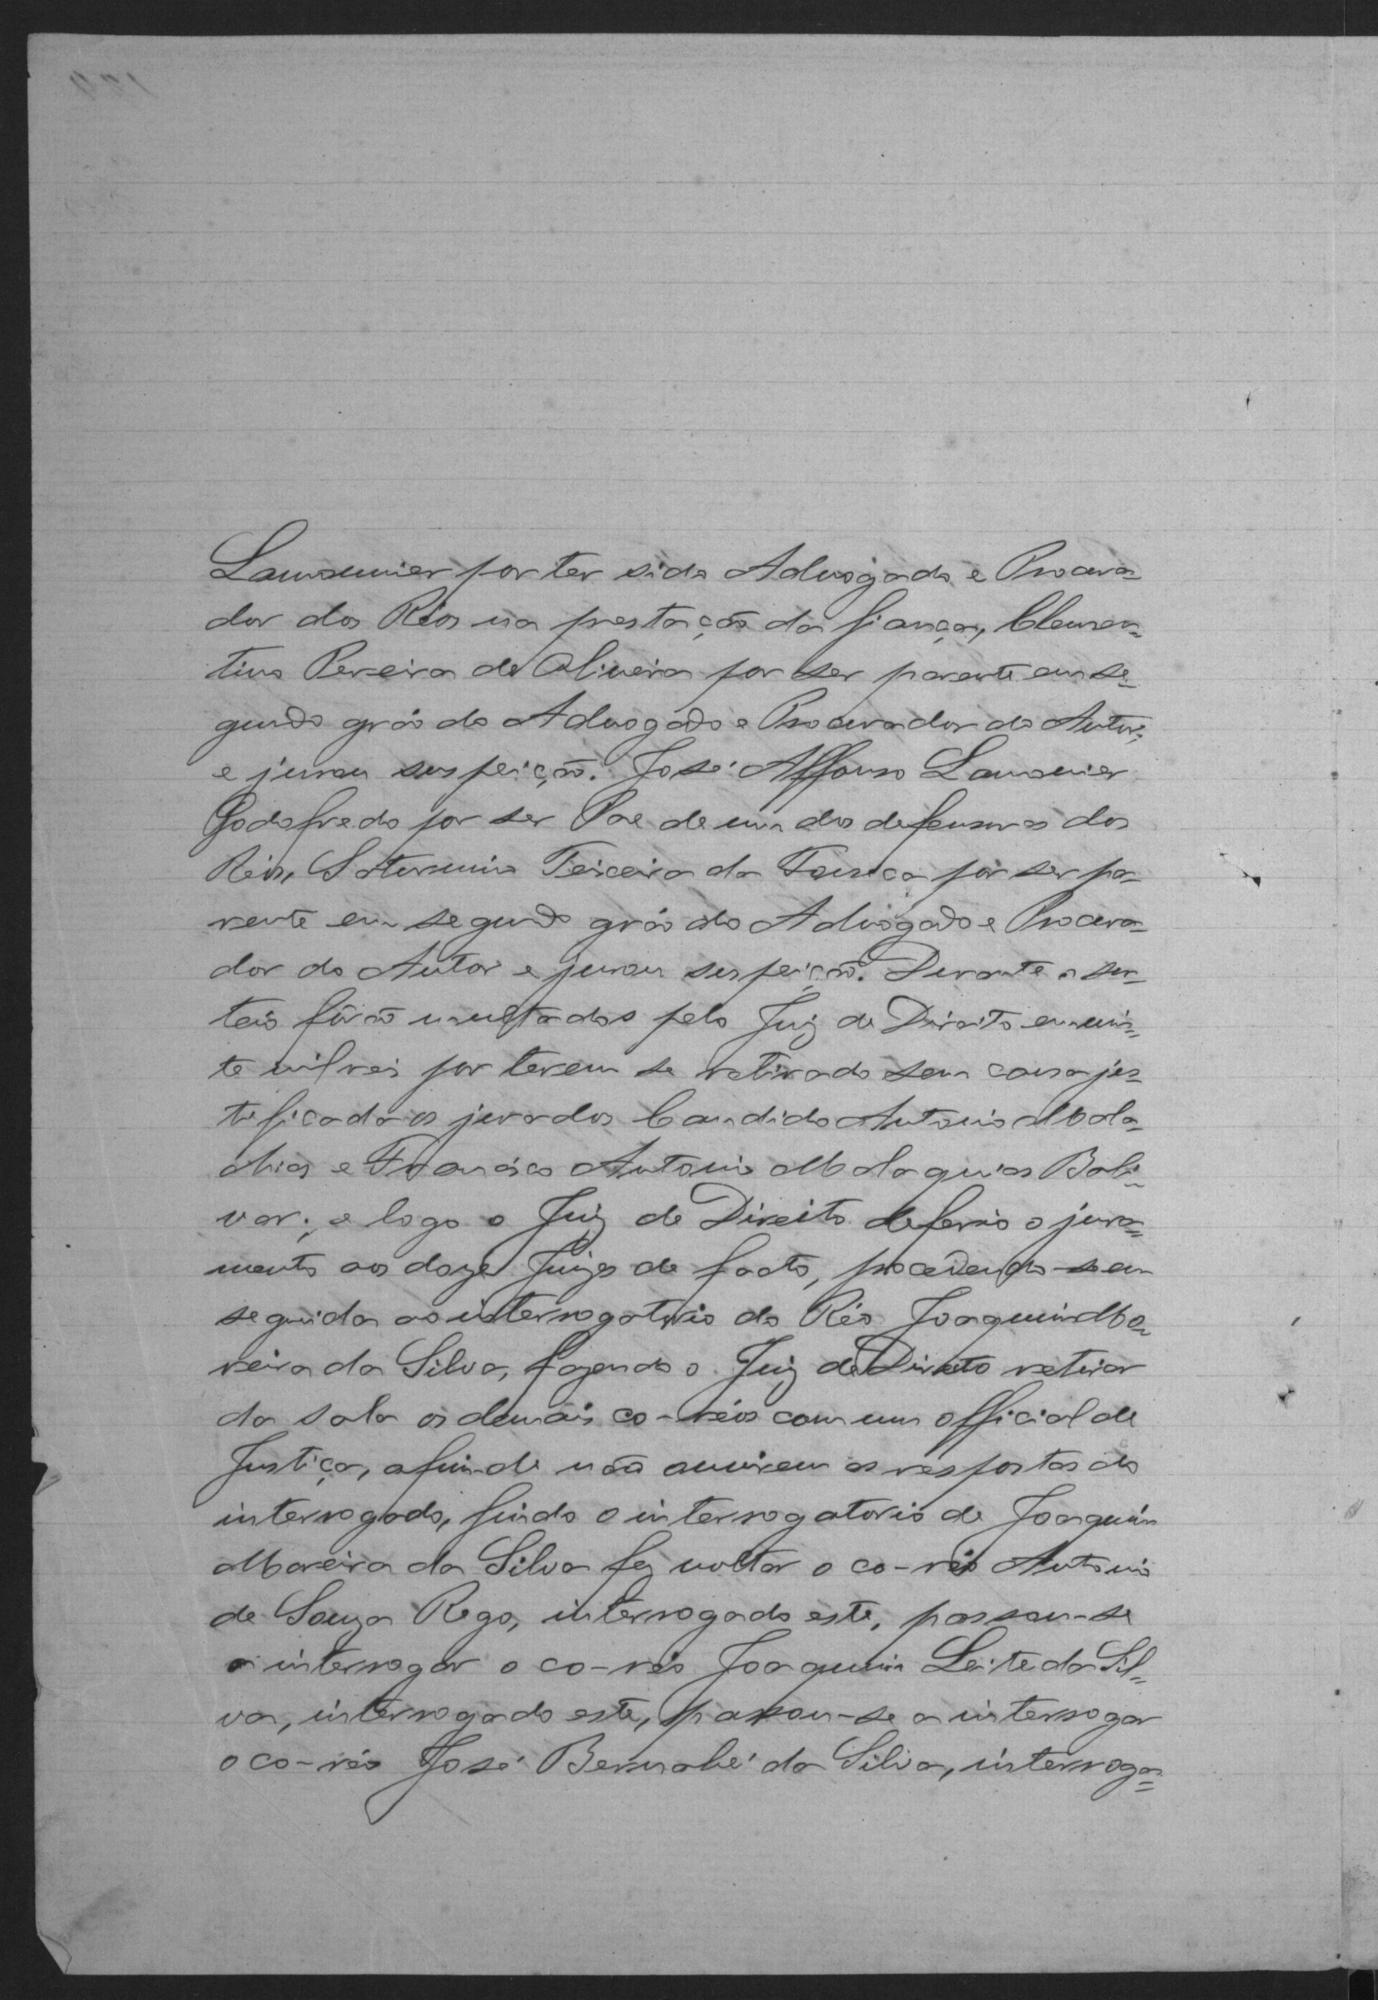 Lamounier por ter sido Advogado e Procura=
dor dos Réos na prestação da fiança, Clemen=
tino Pereira de Oliveira por ser parente em se=
gundo gráo do Advogado e Procurador do Autor;
e jurou suspeição. José Affonso Lamounier
Godofredo por ser Pae de um dos defensores dos
Réos, Saternino Teixeira da Fonseca por ser pa=
rente em segundo gráo do Advogado e Procura=
dor do Autor e jurou suspeição. Durante o sor=
teio fôrão multados pelo Juiz de Direito em vin=
te mil reis por terem se retirado sem causa jus=
tificada os jurados Candido Antonio Mala=
chias e Francisco Antonio Malaquias Boli=
var; e logo o Juiz de Direito deferio o jura=
mento aos doze Juizes de facto, procedendo-se em
seguida ao interrogatorio do Réo Joaquim Mo=
reira da Silva, fazendo o Juiz de Direito retirar
da sala os demais co-réos com um official de
Justiça, afim de não ouvirem as respostas do
interrogado, findo o interrogatorio de Joaquim
Moreira da Silva fez voltar o co-réo Antonio
de Souza Rego, interrogado este, passou-se
a interrogar o co-réo Joaquim Leite da Sil=
va, interrogado este, passou-se a interrogar
o co-réo José Bernabé da Silva, interroga=